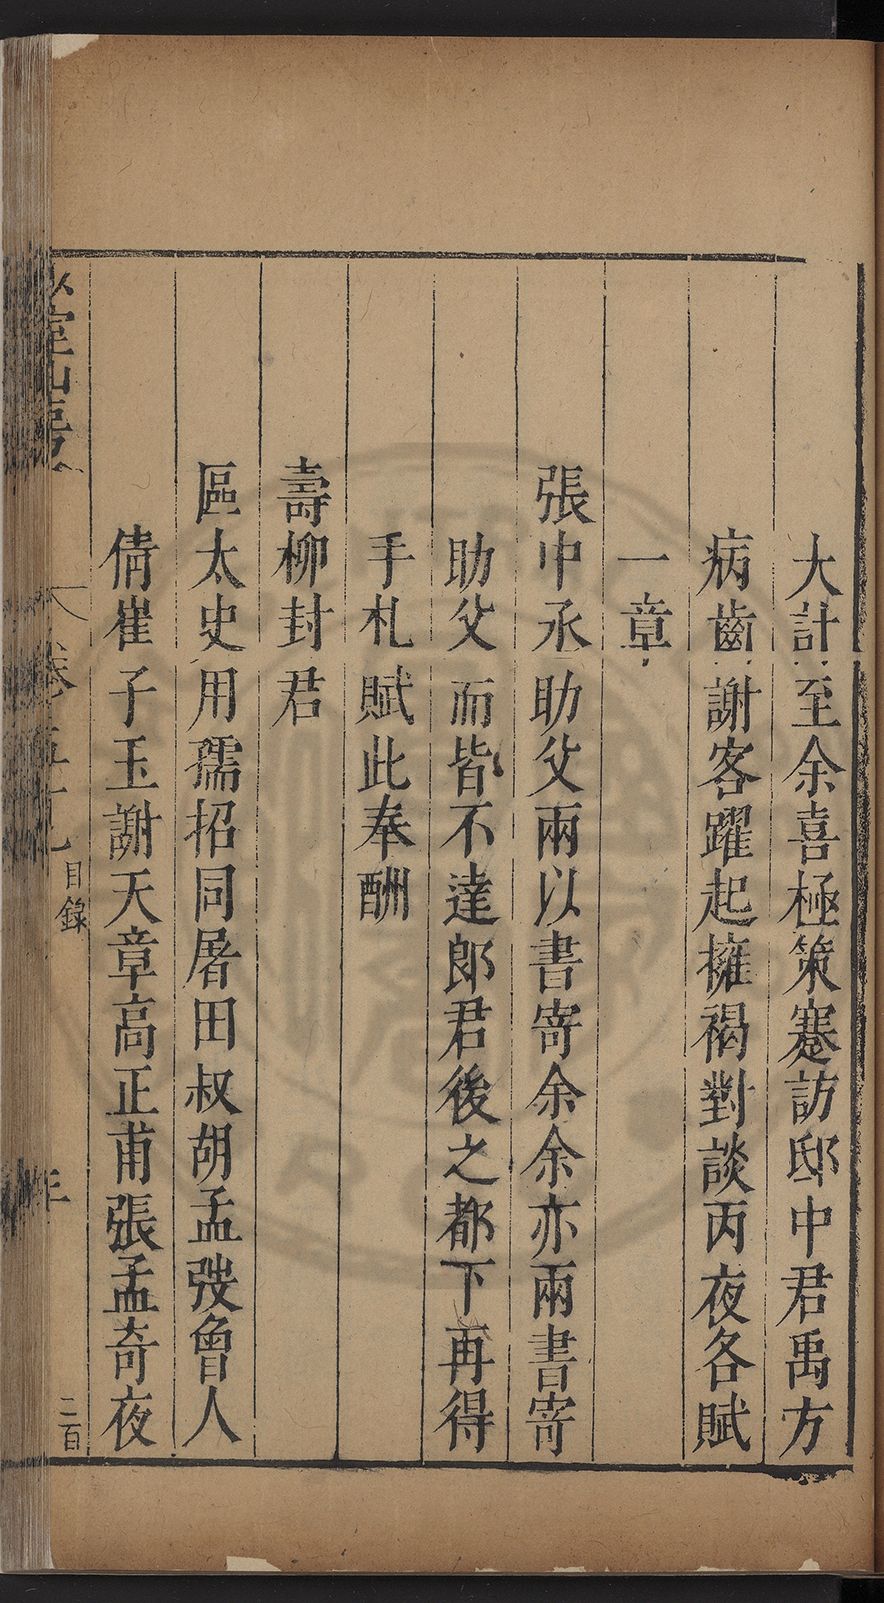 大計至余喜極策蹇訪邸中君禹方
病齒謝客躍起擁褐對談丙夜各賦
一章
張中丞助父兩以書寄余余亦兩書寄
助父而皆不達郎君後之都下再得
手札賦此奉酬
壽柳封君
區太史用孺招同屠田叔胡孟弢曾人
倩崔子玉謝天章高正甫張孟奇夜
目錄
二百